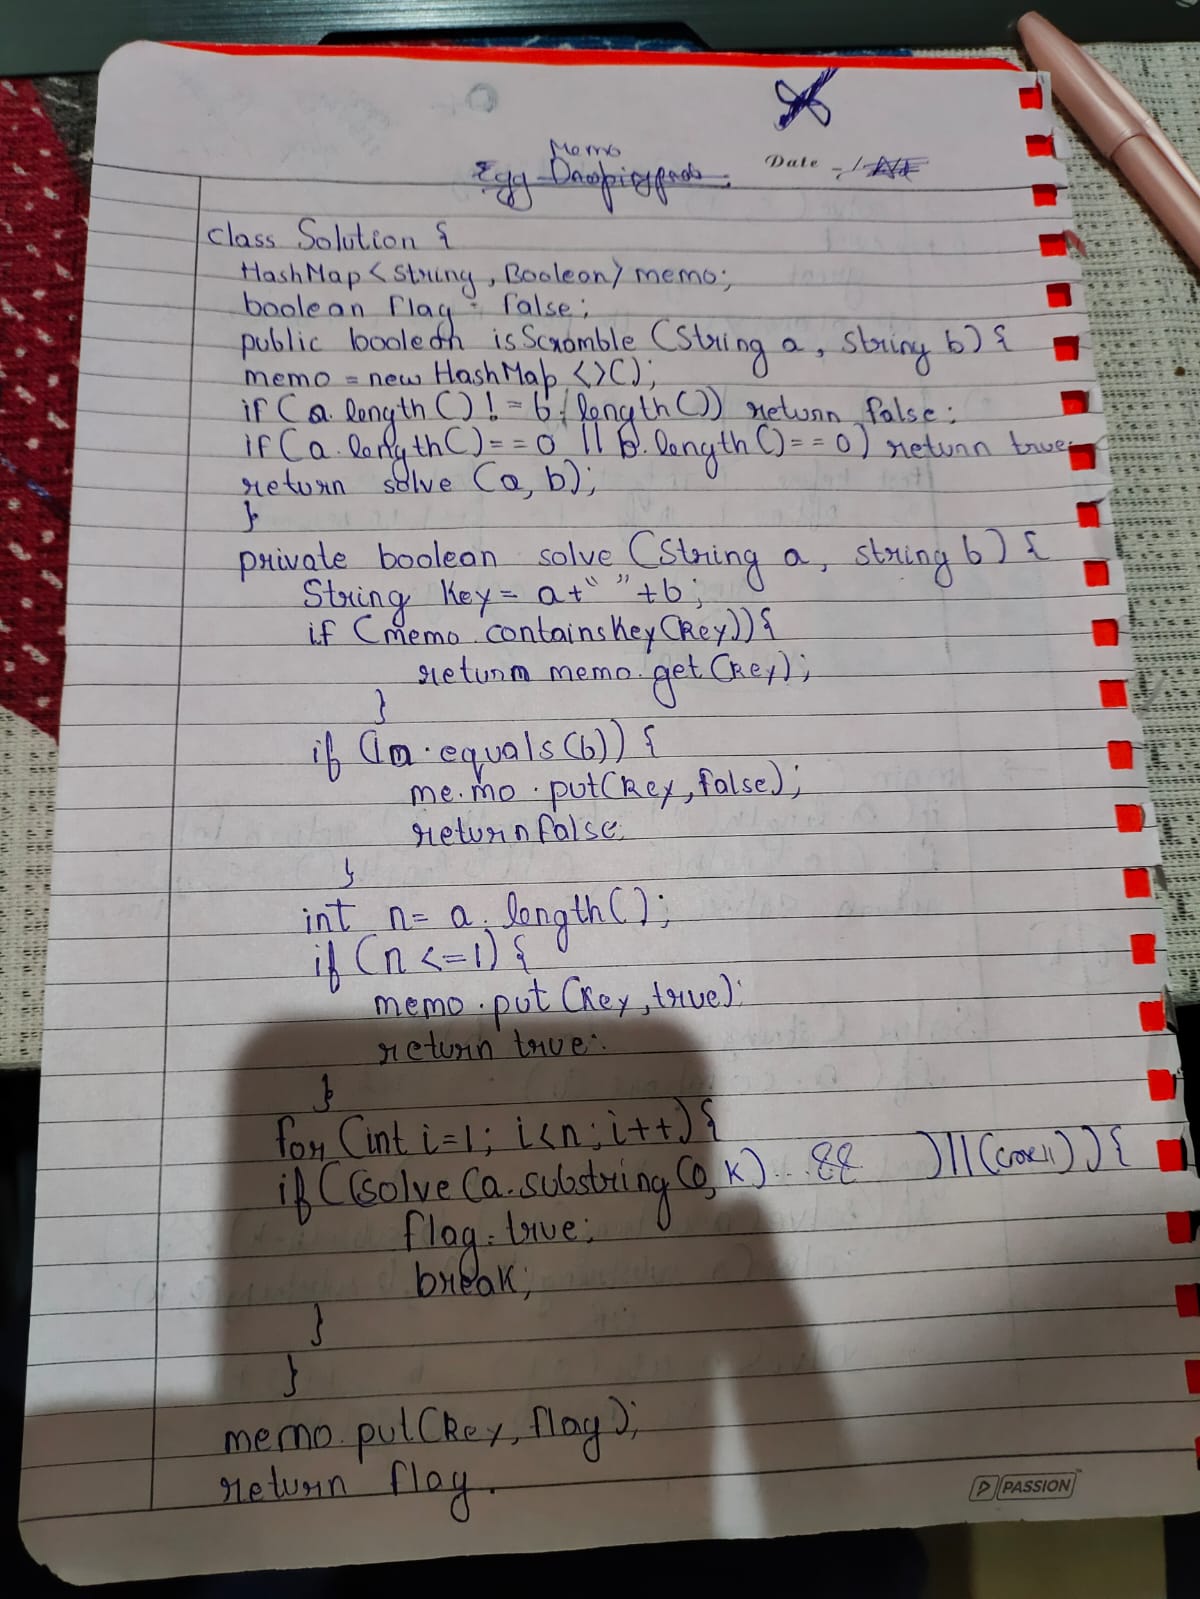 Memo
Egg Droopingprob.
Date
class Solution {
HashMap <String, Boolean> memo;
boolean flag = false;
public boolean isScramble (String a, string b) {
memo = new HashMap <>();
if (a.length() != b.length()) return false;
if (a.length() == 0 || b.length() == 0) return true;
return solve (a, b);
}
private boolean solve (String a, string b) {
String Key = a+" "+b;
if (memo.containsKey(Key)) {
return memo.get(Key);
}
if (!a.equals(b)) {
me.mo.put(Key, false);
return false;
}
int n= a.length();
if (n <=1) {
memo.put (Key, true);
return true;
}
for (int i=1; i<n; i++) {
if ((solve (a.substring (0, K) .. && ) || ( )) {
flag = true;
break;
}
}
memo.put (Key, flag);
return flag.
PASSION